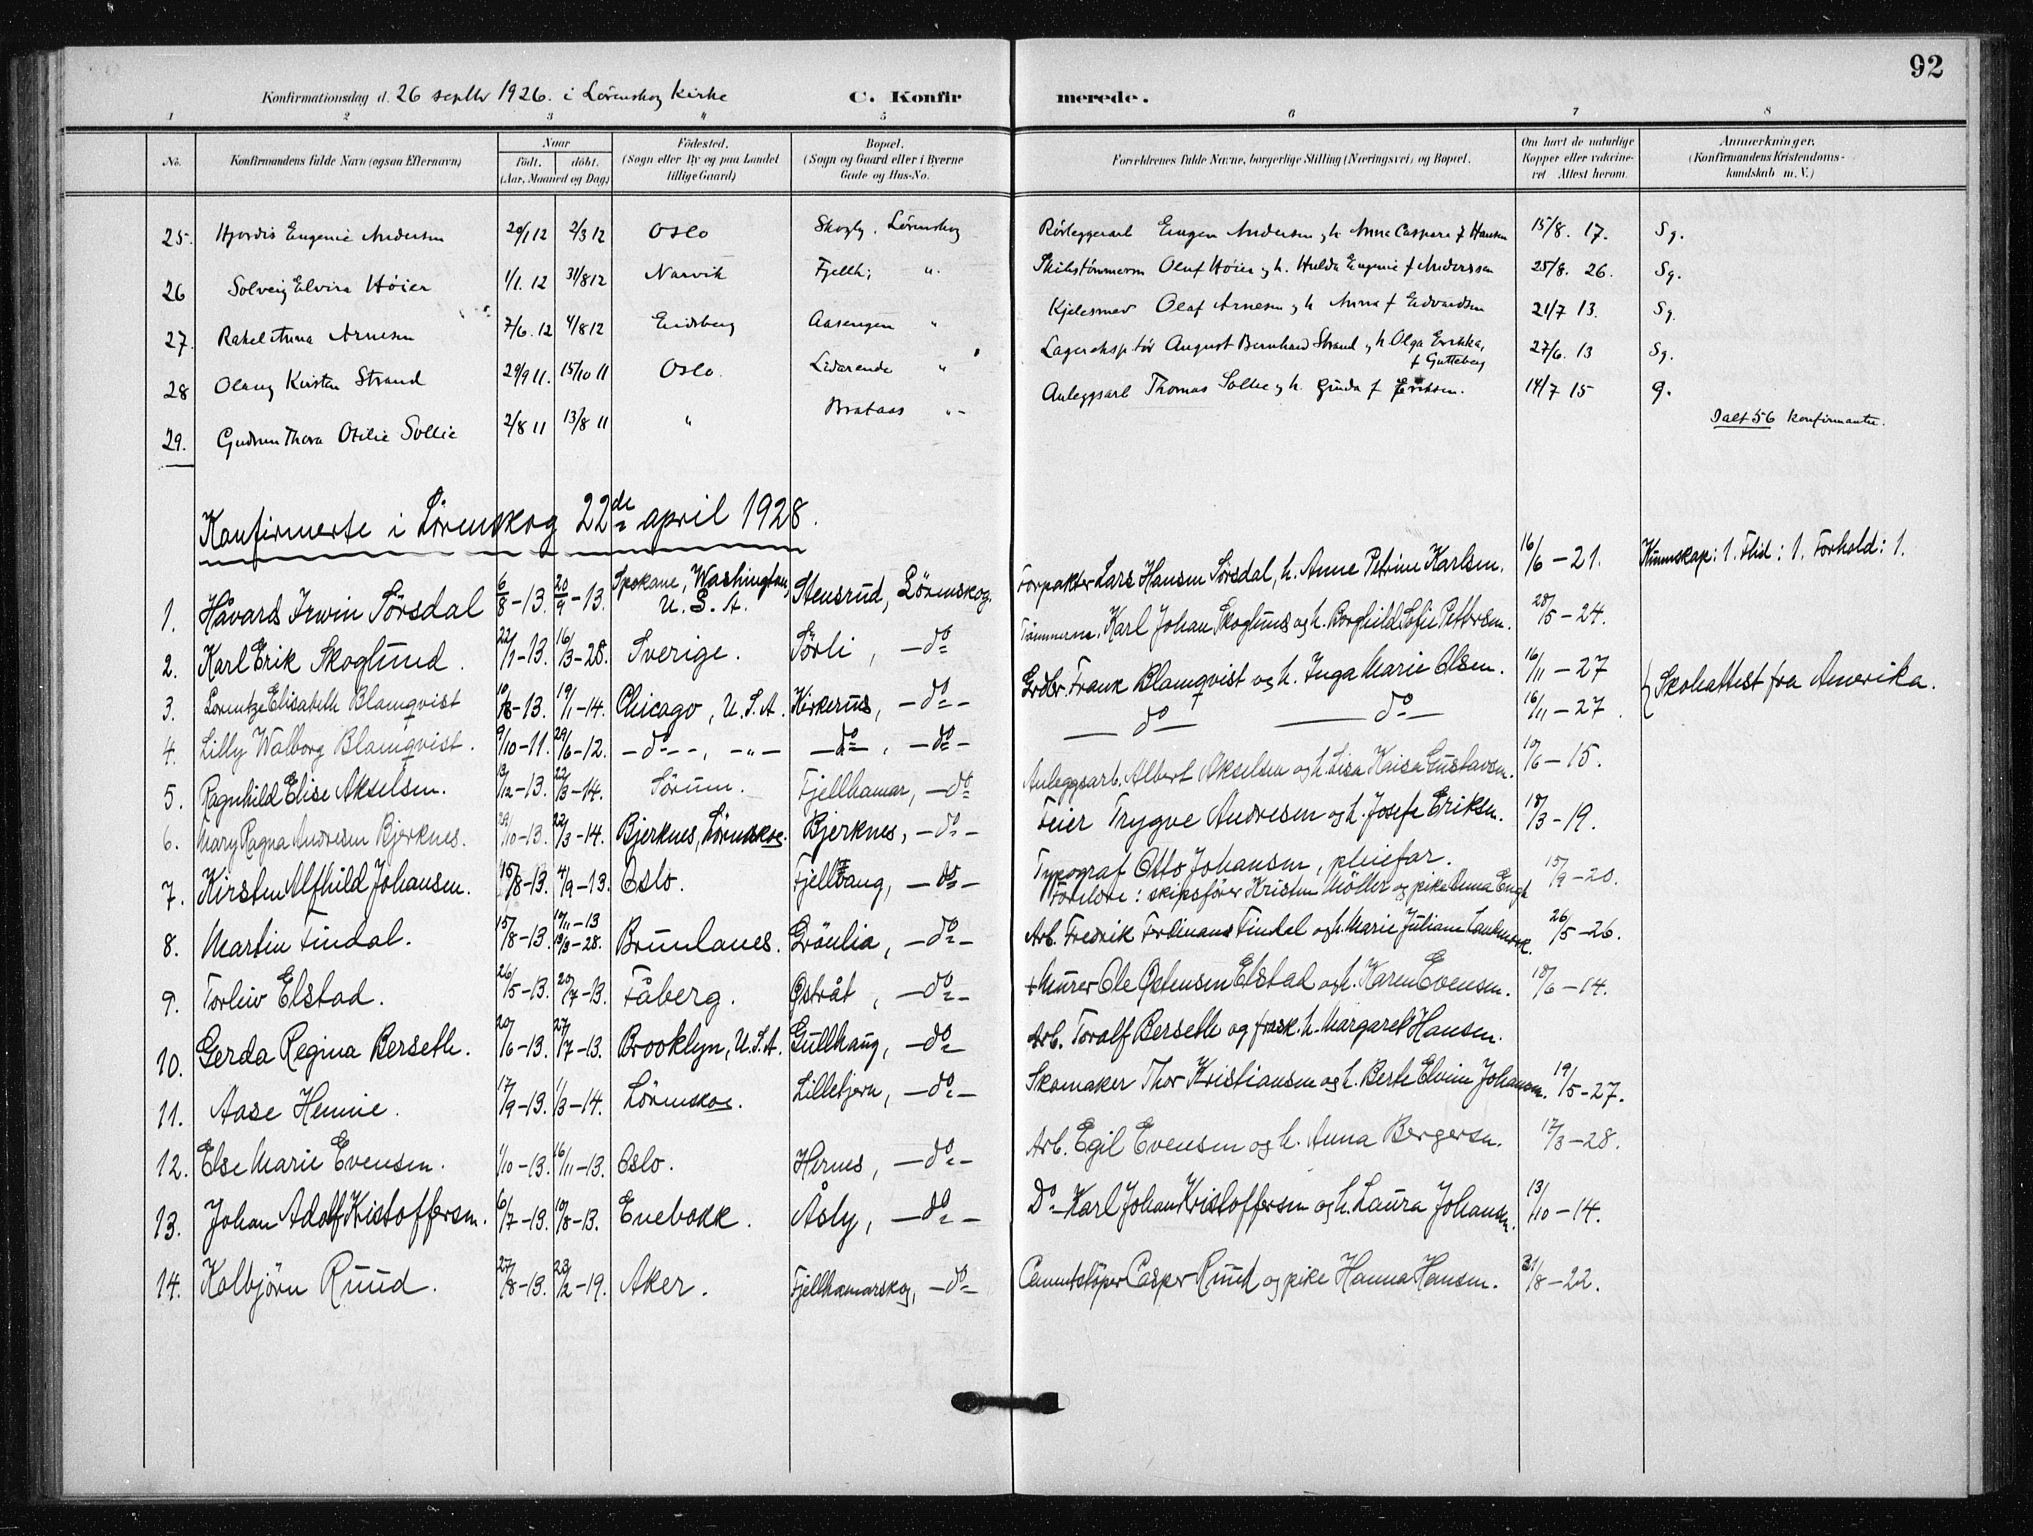 92
Konfirmationsdag d. 26 septbr 1926. i Lørenskog Kirke C. Konfirmerede.
1 2 3 4 5 6 7 8
No. Konfirmandens fulde Navn (ogsaa Efternavn) Naar født. døbt. (Aar, Maaned og Dag) Fødested. (Sogn eller By og paa Landet tillige Gaard) Bopæl. (Sogn og Gaard eller i Byerne Gade og Hus-No. Forældrenes fulde Navne, borgerlige Stilling (Næringsvei) og Bopæl. Om havt de naturlige Kopper eller vakcineret Attest herom. Anmærkninger. (Konfirmandens Kristendomskundskab m. V.)
25. Hjordis Eugenie Andersen 20/1 12 2/3 12 Oslo Skogly. Lørenskog Rørleggerarb Eugen Andersen og h. Anna Caspara f Hansen 15/8. 17. Sg.
26 Solveig Elvira Høier 1/1. 12 31/8 12 Narvik Fjellh; " Skibstømmerm Oluf Høier og h. Hulda Eugenie f Anderssen 25/8. 26. Sg.
27. Rakel Anna Arnesen 7/6. 12 4/8 12 Eidsberg Aasengen " Kjelesmed Olaf Arnesen og h Anna f Edvardsen 21/7 13. Sg.
28 Olaug Kirsten Strand 29/9 11. 15/10 11 Oslo. " Lagerekspitør August Bernhard Strand og h. Olga Erikka, f Gutteberg 27/6. 13 Sg.
29. Gudrun Thora Otilie Sollie 2/8 11 13/8 11 " Brataas " Anleggsarb Thomas Sollie og h. Gunda f Eriksen. 14/7 15 g.
Ialt 56 konfirmanter.
Konfirmerte i Lörenskog 22de april 1928.
1. Håvard Irwin Sörsdal 6/8-13. 20/9-13. Spokane, Washington, U.S.A. Stensrud, Lörenskog. Forpakter Lars Hansen Sörsdal, h. Anne Petrine Karlsen. 16/6-21. Kunnskap: 1. Flid: 1. Forhold: 1.
2. Karl Erik Skoglund. 22/1-13. 16/3-28. Sverige. Sörli, -do- Tömmerm. Karl Johan Skoglund og h. Borghild Sofie Pettersen. 28/5-24.
3. Lorentze Elisabeth Blamqvist 10/8-13. 19/1-14. Chicago, U.S.A. Kirkerud, -do- Grdbr. Frank Blamqvist og h. Inga Marie Olsen. 16/11-27 } Skoleattest fra Amerika.
4. Lilly Walborg Blamqvist. 9/10-11. 29/6-12. -do-, -"- -do-, -do- -do- -do- 16/11-27.
5. Ragnhild Elise Akselsen. 13/12-13. 22/3-14. Sörum. Fjellhamar, -do- Anleggsarb. Albert Akselsen og h. Lisa Kaisa Gustavsen. 10/6-15.
6. Mary Ragna Andresen Bjerknes. 29/10-13. 22/3-14. Bjerknes, Lörenskog. Bjerknes, -do- Feier Trygve Andresen og h. Josefe Eriksen. 18/3-19.
7. Kirsten Alfhild Johansen. 16/8-13. 4/9-13. Oslo. Fjellvang, -do- Typograf Otto Johansen, pleiefar. Foreldre: skipsfører Kristen Möller og pike Anna Engh 15/9-20.
8. Martin Findal. 15/8-13. 10/11-13 19/3-28. Brunlanes. Grönlia, -do- Arb. Fredrik Ferdinand Findal og h. Marie Juliane 26/5-26.
9. Torleiv Elstad. 26/5-13. 20/7-13. Fåberg. Østråt, -do- + Murer Ole Østensen Elstad og h. Karen Evensen. 18/6-14.
10. Gerda Regina Berseth. 20/6-13. 27/7-13. Brooklyn, U.S.A. Gullhaug, -do- Arb. Toralf Berseth og frask. h. Margaret Hansen.
11. Aase Hennie. 17/9-13. 1/3-14. Lörenskog. Lilletjern, -do- Skomaker Thor Kristiansen og h. Berte Elvine Johansen. 19/5-27.
12. Else Marie Evensen. 1/10-13. 16/11-13. Oslo. Hernes, -do- Arb. Egil Evensen og h. Anna Bergersen. 17/3-28.
13. Johan Adolf Kristoffersen. 6/7-13. 10/8-13. Enebakk. Åsly, -do- Do- Karl Johan Kristoffersen og h. Laura Johansen. 13/10-14.
14. Kolbjörn Ruud. 27/8-13. 23/2-19. Aker. Fjellhamarskog, -do- Cementstöper Casper Ruud og pike Hanna Hansen. 31/8-22.